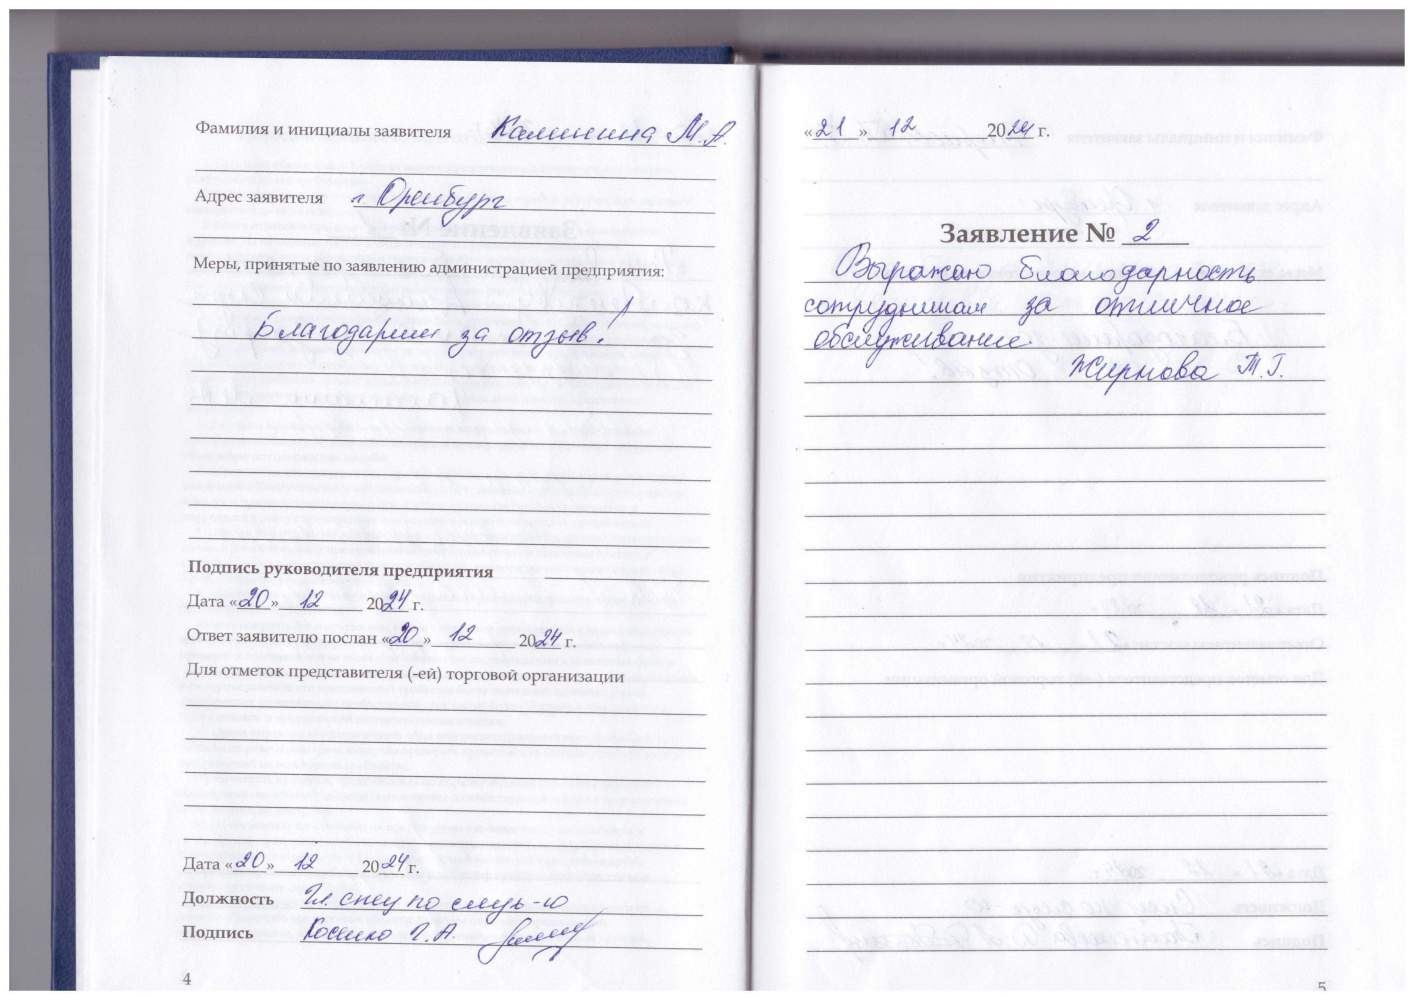 Фамилия и инициалы заявителя Калинина М.А.
Адрес заявителя г. Оренбург
Меры, принятые по заявлению администрацией предприятия:
Благодарим за отзыв!
Подпись руководителя предприятия
Дата «20» 12 2024 г.
Ответ заявителю послан «20» 12 2024 г.
Для отметок представителя (-ей) торговой организации
Дата «20» 12 2024 г.
Должность Гл. спец по
Подпись Г.А.
4
«21» 12 2024 г.
Заявление № 2
Выражаю благодарность
сотрудникам за отличное
обслуживание.
Жирнова Т.Г.
5